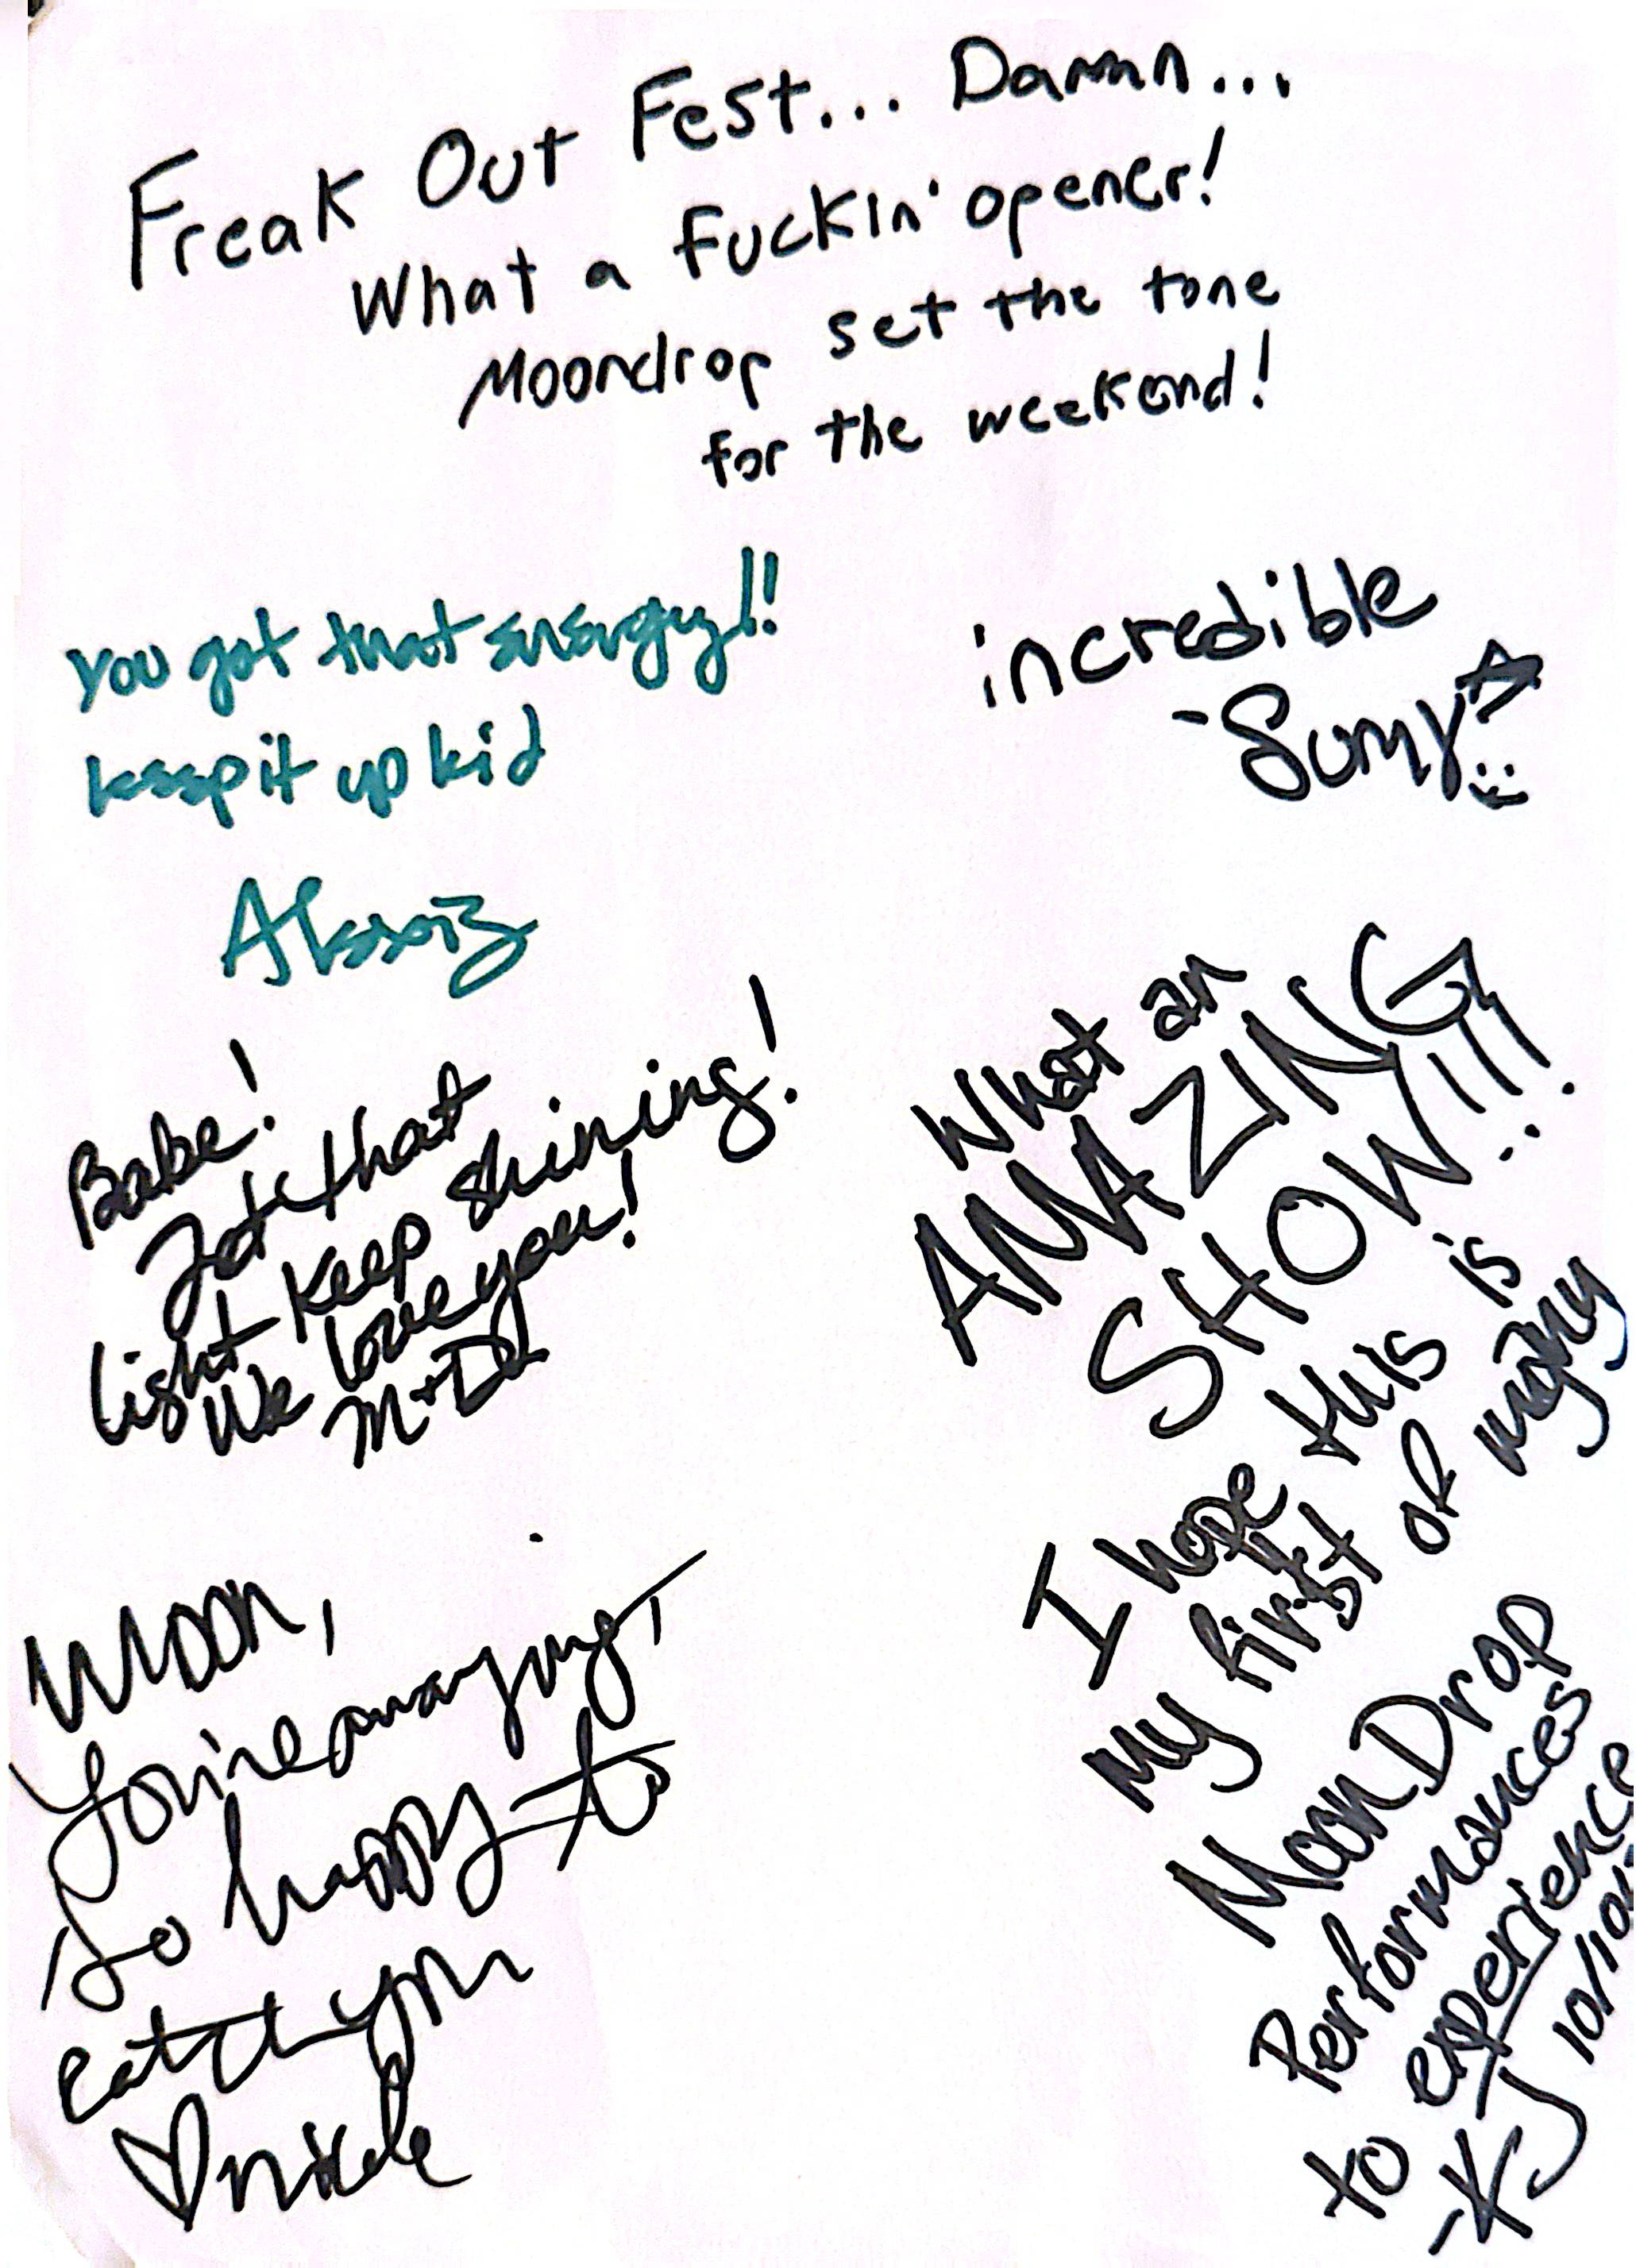 Freak Out Fest... Damn...
What a fuckin' opener!
Moondrop set the tone
for the weekend!
You got that energy!!
keep it up kid
incredible
Babe!
that
light keep shining!
We love you!
M+D
What an
AMAZING
SHOW!!!
I hope this is
my first of many
MoonDrop
Performances
to experience
-KJ 10/10
Moon,
You're amazing,
So happy to
catch you
♡ nicole